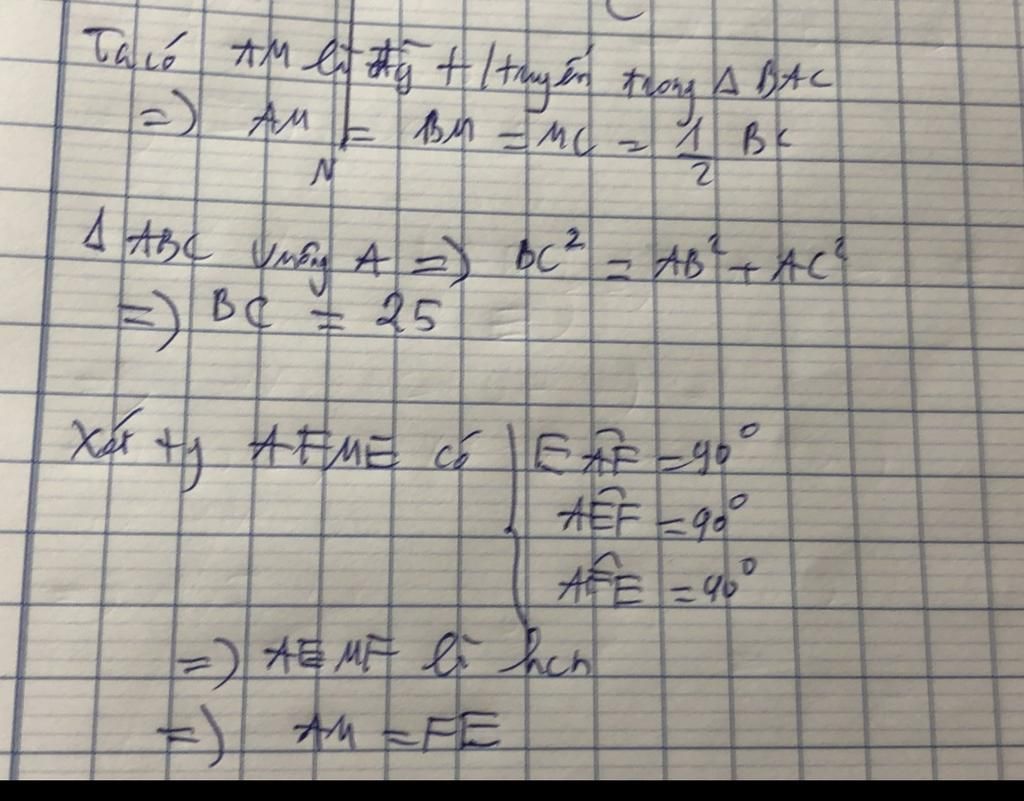 Ta có AM là đg t/tuyến trong Δ BAC
=) AM = BM = MC = 1/2 BC
N
Δ ABC vuông A =) BC² = AB² + AC²
=) BC = 25
Xét tg AFME có EAF = 90°
AEF = 90°
AFE = 90°
=) AEMF là hcn
=) AM = FE